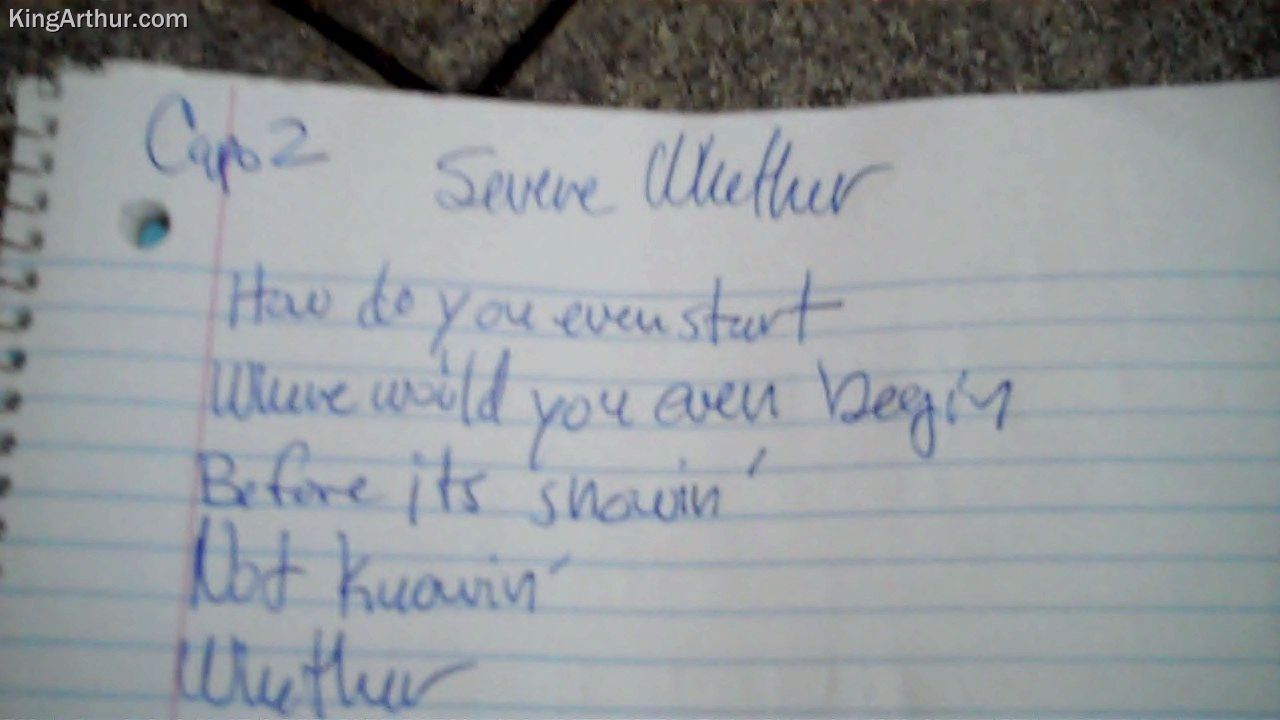 KingArthur.com
Capo 2
Severe Whether
How do you even start
Where would you even begin
Before its snowin'
Not knowin'
Whether